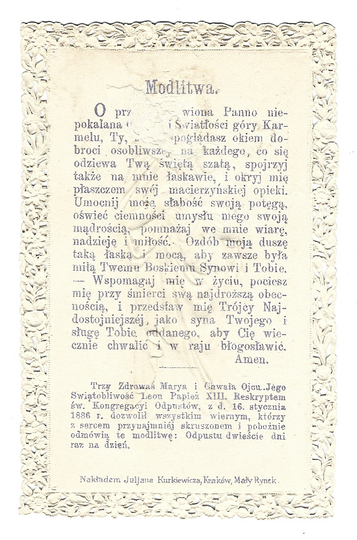 Modlitwa.
O prz wiona Panno nie-
pokalana i Światłości góry Kar-
melu, Ty, poglądasz okiem do-
broci osobliwszej na każdego, co się
odziewa Twą świętą szatą, spojrzyj
także na mnie łaskawie, i okryj mię
płaszczem swej macierzyńskiej opieki.
Umocnij moję słabość swoją potęgą,
oświeć ciemności umysłu mego swoją
mądrością, pomnażaj we mnie wiarę,
nadzieję i miłość. Ozdób moją duszę
taką łaską mocą, aby zawsze była
miłą Twemu Boskiemu Synowi i Tobie.
— Wspomagaj mię w życiu, pociesz
mię przy śmierci swą najdroższą obec-
nością, i przedstaw mię Trójcy Naj-
dostojniejszej, jako syna Twojego i
sługę Tobie oddanego, aby Cię wie-
cznie chwalić i w raju błogosławić.
Amen.
Trzy Zdrowaś Marya i Chwała Ojcu. Jego
Świątobliwość Leon Papież XIII. Reskryptem
św. Kongregacyi Odpustów, z d. 16. stycznia
1886 r. dozwolił wszystkim wiernym, którzy
z sercem przynajmniej skruszonem i pobożnie
odmówią te modlitwę: Odpustu dwieście dni
raz na dzień.
Nakładem Juljana Kurkiewicza, Kraków, Mały Rynek.